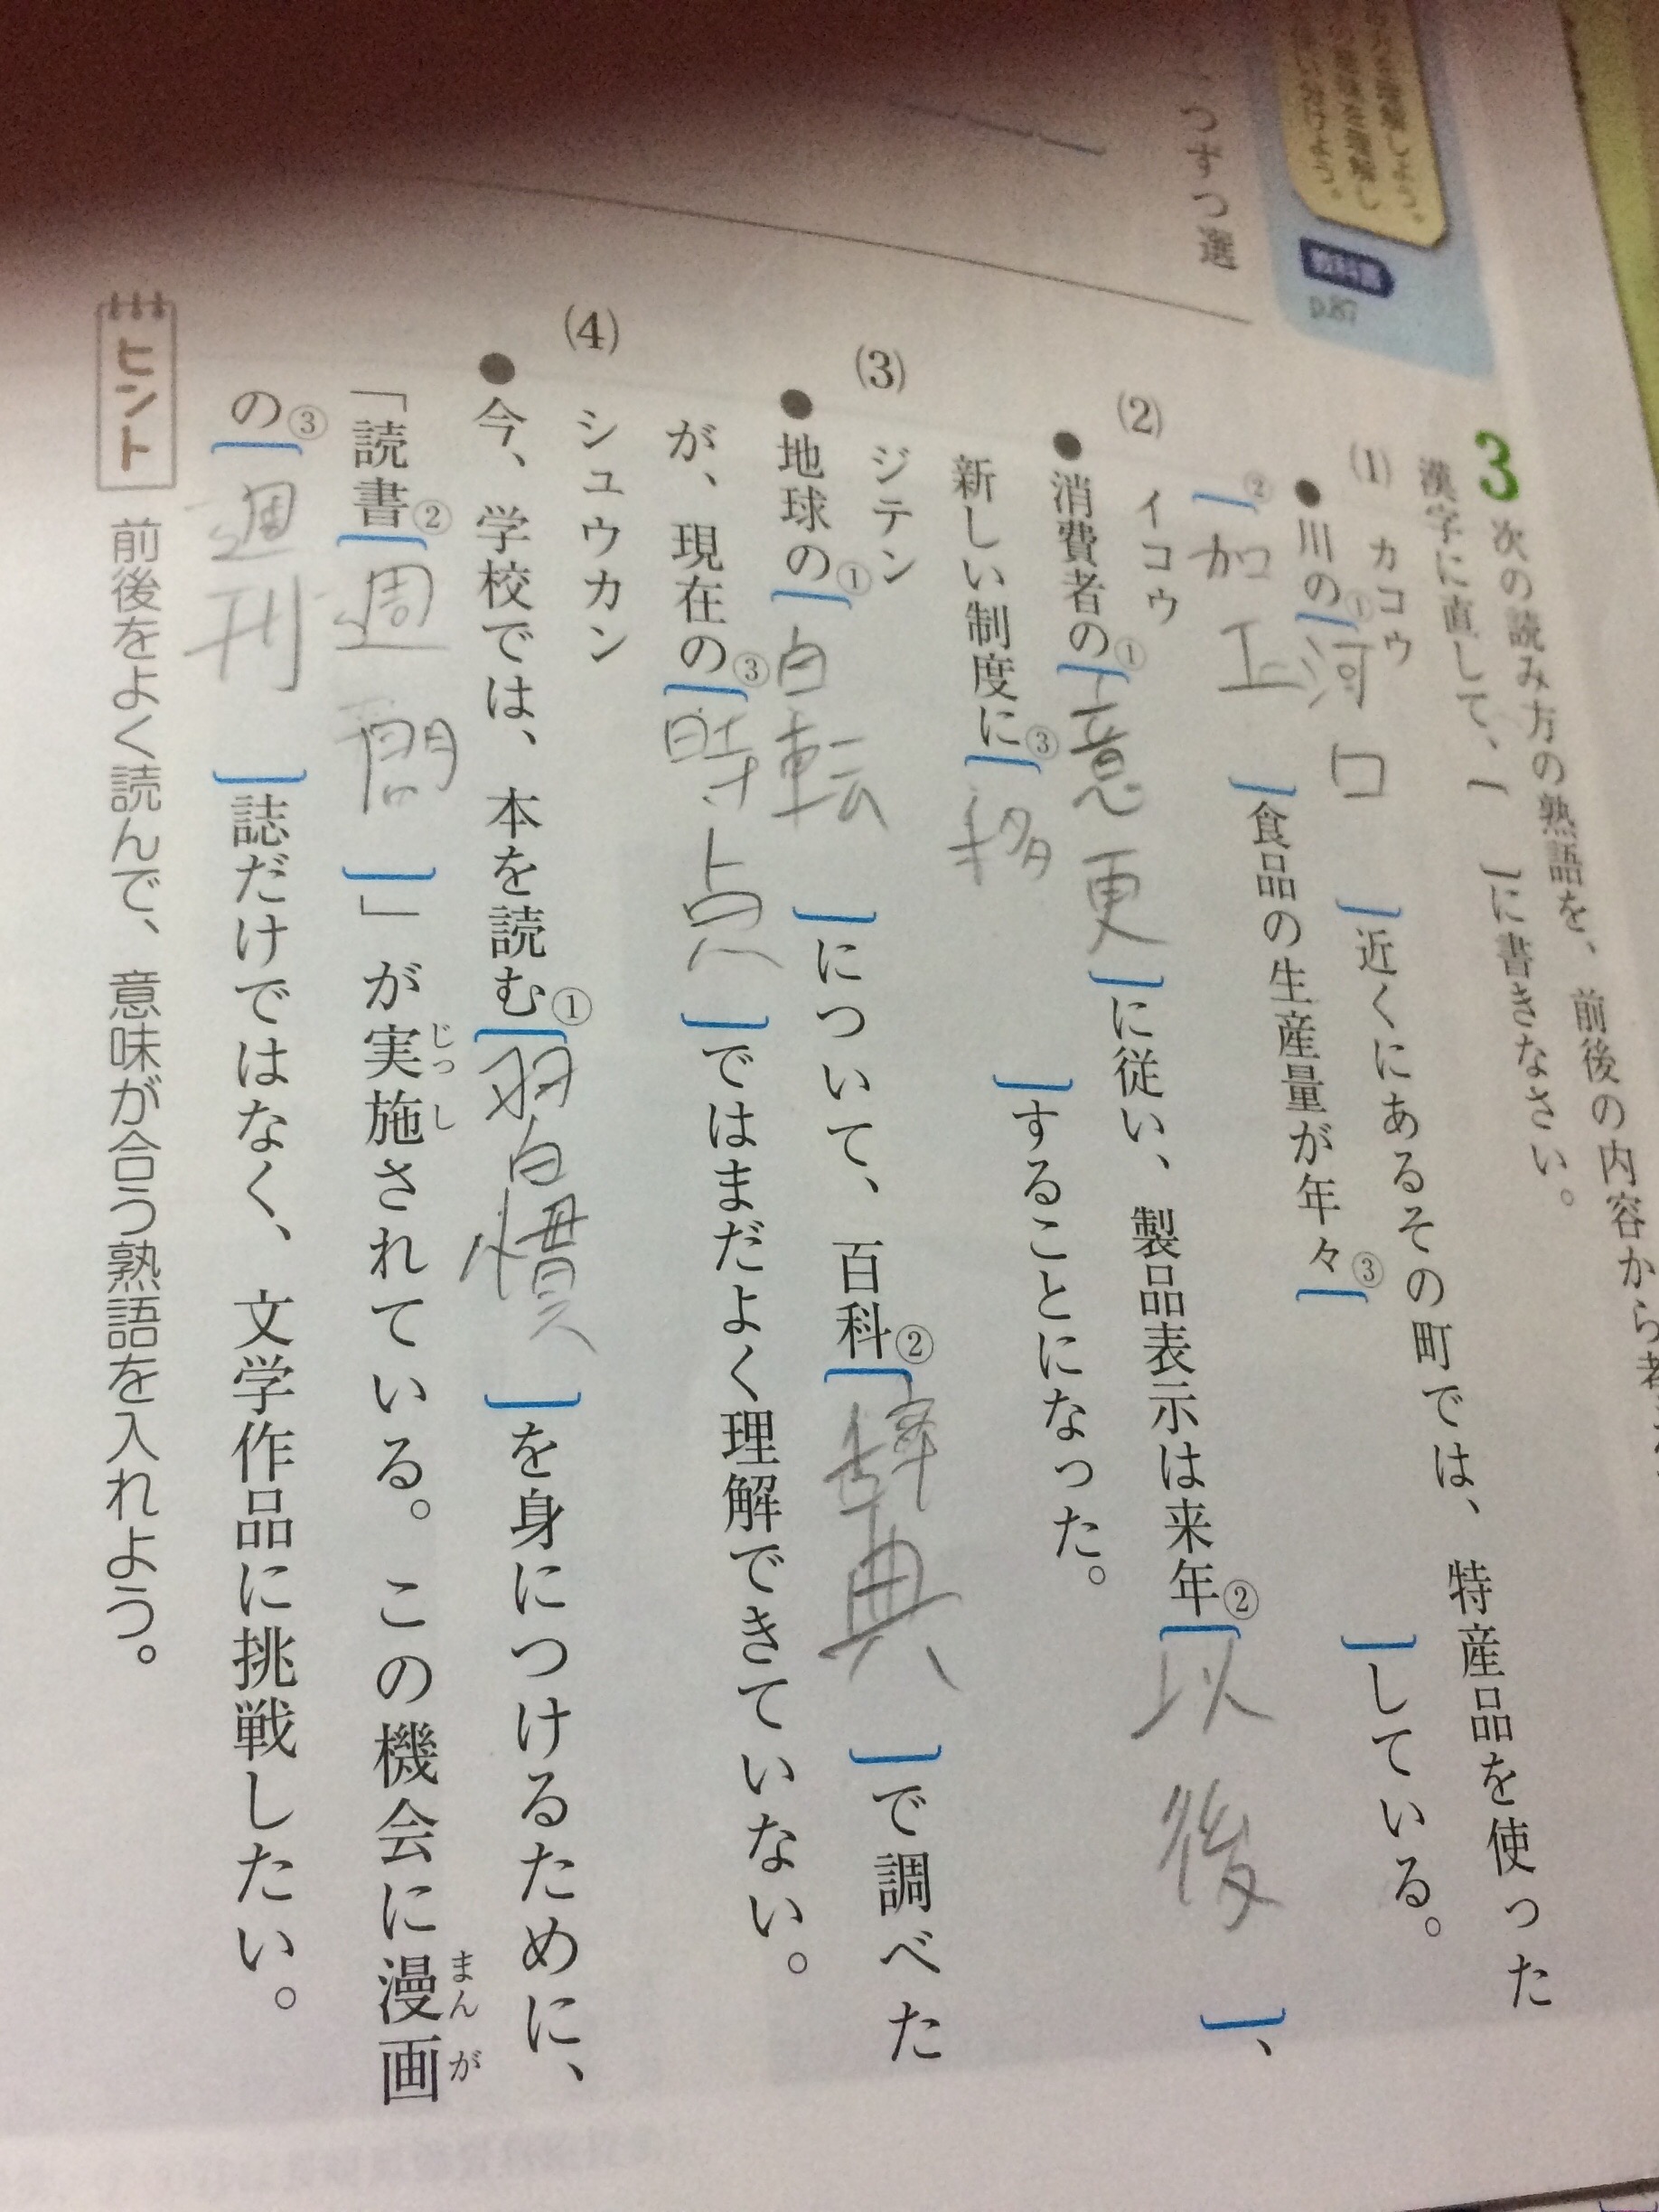 つずつ選
教科書
p.87
3 次の読み方の熟語を、前後の内容から
漢字に直して、〔 〕に書きなさい。
(1) カコウ
●川の①〔河口〕近くにあるその町では、特産品を使った
②〔加工〕食品の生産量が年々③〔 〕している。
(2) イコウ
●消費者の①〔意更〕に従い、製品表示は来年②〔以後〕、
新しい制度に③〔移 〕することになった。
(3) ジテン
●地球の①〔自転〕について、百科②〔辞典〕で調べた
が、現在の③〔時点〕ではまだよく理解できていない。
(4) シュウカン
●今、学校では、本を読む①〔習慣〕を身につけるために、
「読書②〔週間〕」が実施されている。この機会に漫画
じっし
まんが
の③〔週刊〕誌だけではなく、文学作品に挑戦したい。
ヒント 前後をよく読んで、意味が合う熟語を入れよう。